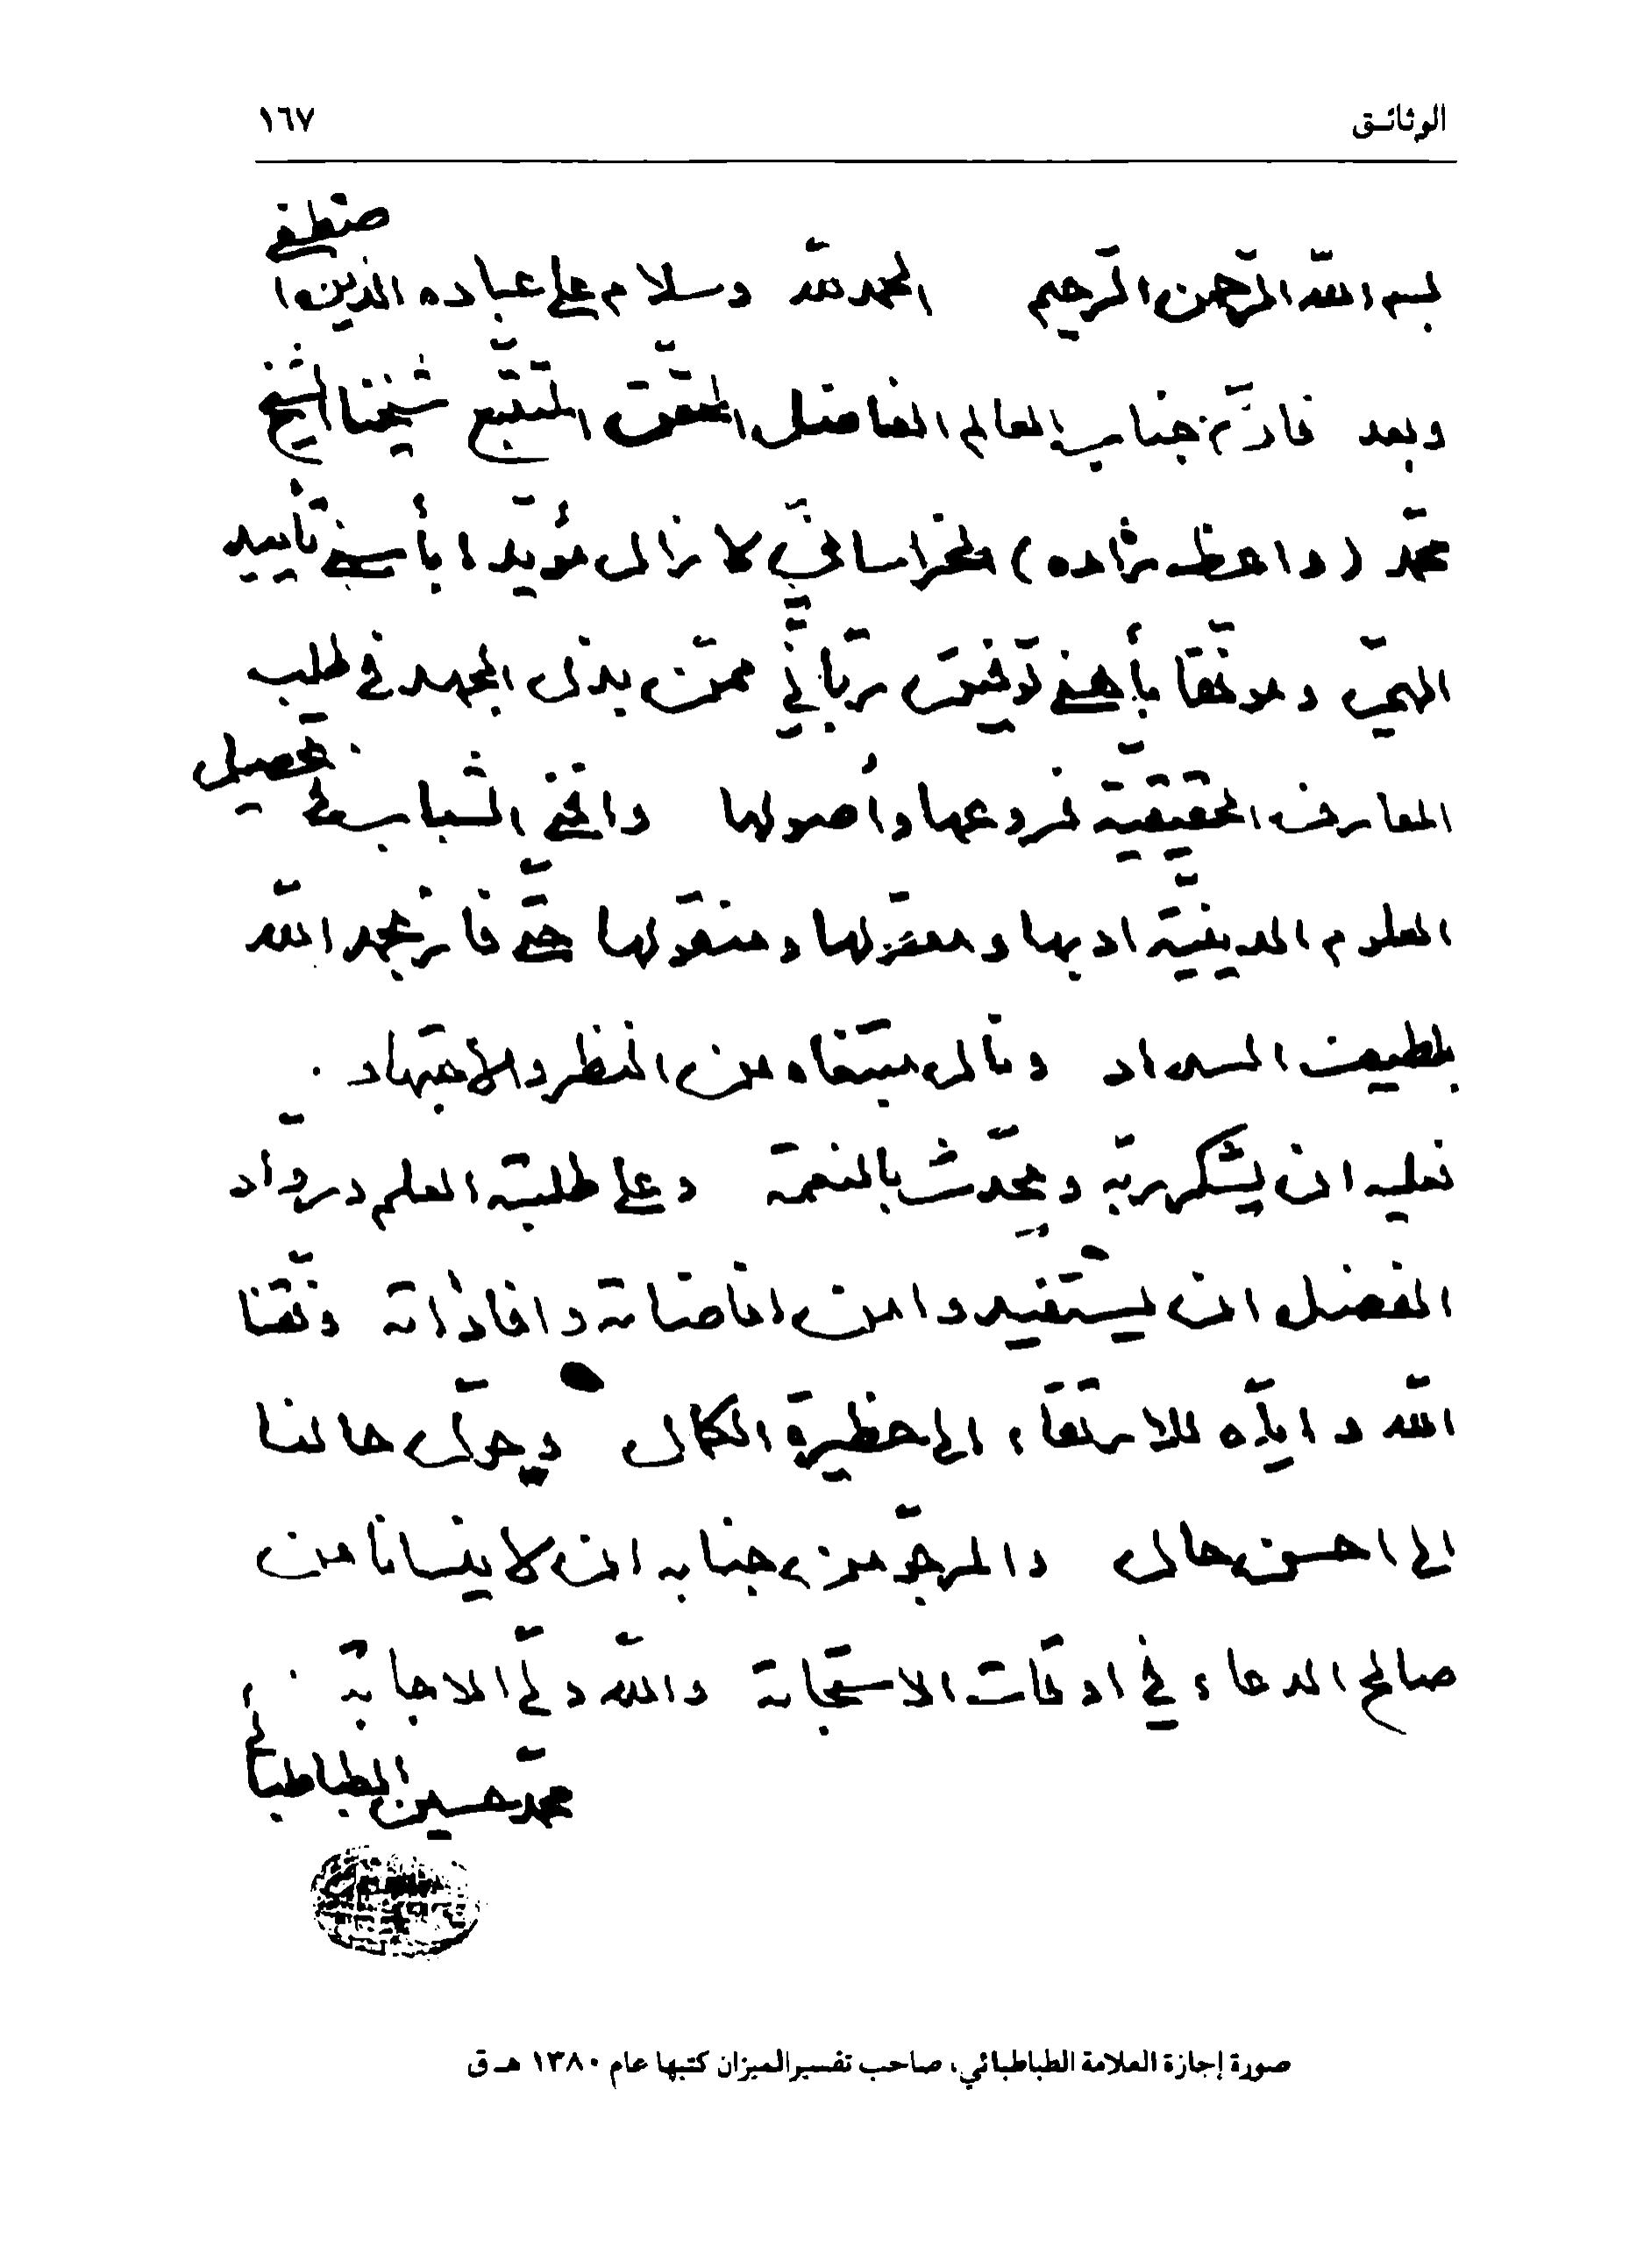 الوثائق ١٦٧
بسم الله الرّحمن الرّحيم الحمد للّه وسلام على عباده الذين اصطفى
وبعد فانّ جناب العالم الفاضل المحقّق المتتبّع شيخنا الشيخ
محمّد (واعظ زاده) الخراسانيّ لا زال مؤيّدا بأسنى تأييد
الهيّ وموفّقا بأهنى توفيق ربّانيّ ممّن بذل الجهد في طلب
المعارف الحقيقيّة فروعها وأصولها وافنى الشباب في تحصيل
العلوم الدينيّة ادبها ومعقولها ومنقولها حتّى فاز بحمد اللّه
بلطيف السداد ونال مبتغاه من النظر والاجتهاد .
فعليه ان يشكر ربّه ويحدّث بالنعمة وعلى طلبة العلم وروّاد
الفضل ان يستفيدوا من افاضاته وافاداته وفّقنا
اللّه وايّاه للارتقاء الى حظيرة الكمال وحوّل حالنا
الى احسن حال والمرجوّ من جنابه ان لا ينسانا من
صالح الدعاء في اوقات الاستجابة واللّه وليّ الاجابة .
محمّد حسين الطباطبائي
صورة إجازة العلامة الطباطبائي، صاحب تفسير الميزان كتبها عام ١٣٨٠ هـ ق